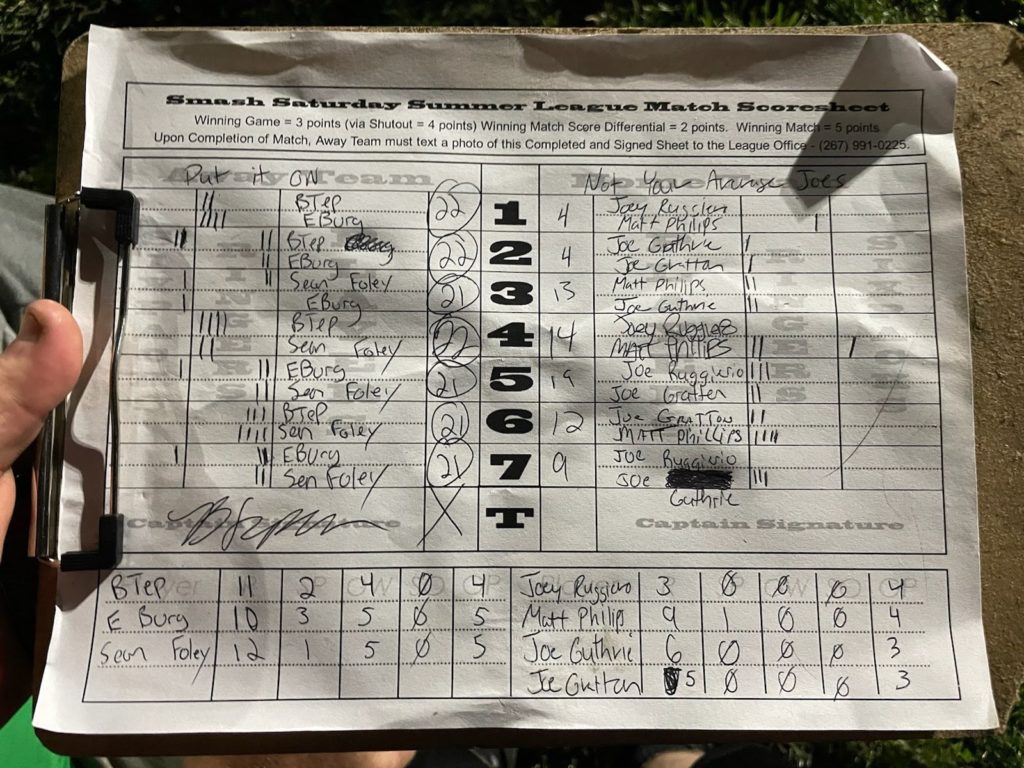 Smash Saturday Summer League Match Scoresheet
Winning Game = 3 points (via Shutout = 4 points) Winning Match Score Differential = 2 points. Winning Match = 5 points
Upon Completion of Match, Away Team must text a photo of this Completed and Signed Sheet to the League Office - (267) 991-0225.
Put it ON Not Your Average Joes
BTep 22 1 4
EBurg Matt Philips
BTep 22 2 4 Joe Guthrie
EBurg Joe Gratton
Sean Foley 21 3 13 Matt Philips
EBurg Joe Guthrie
BTep 22 4 14 Joey
Sean Foley MATT
EBurg 21 5 19 Joe Ruggiurio
Sean Foley Joe Gratten
BTeP 21 6 12 JOE GRATTON
Sen Foley MATT PHILLIPS
EBurg 21 7 9 Joe Ruggiurio
Sen Foley JOE
Guthrie
Captain Signature X T Captain Signature
BTep 11 2 4 0 4 Joey Ruggiuro 3 0 0 0 4
E Burg 10 3 5 0 5 Matt Philip 9 1 0 0 4
Sean Foley 12 1 5 0 5 Joe Guthrie 6 0 0 0 3
Joe Gratton 5 0 0 0 3